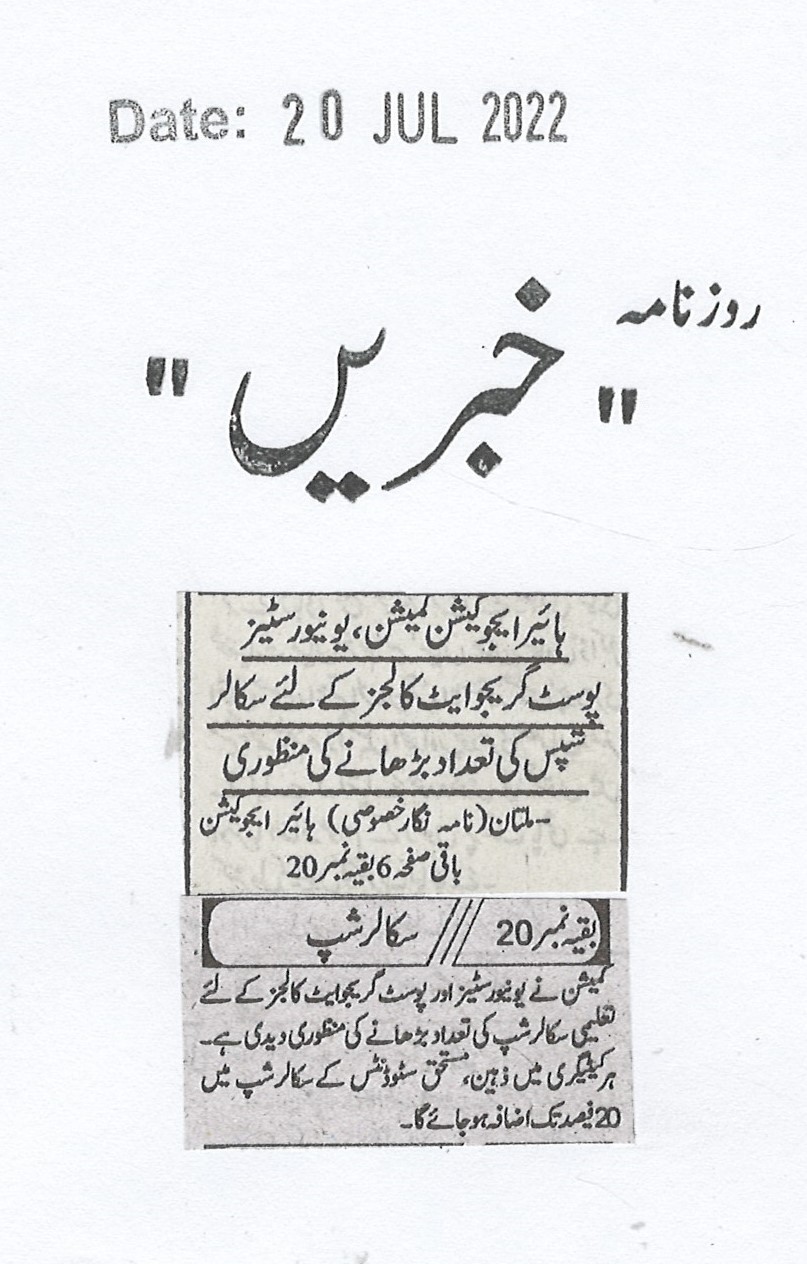 Date: 20 JUL 2022
روزنامہ
"خبریں"
ہائیر ایجوکیشن کمیشن، یونیورسٹیز
پوسٹ گریجوایٹ کالجز کے لئے سکالر
شپس کی تعداد بڑھانے کی منظوری
-ملتان (نامہ نگار خصوصی) ہائیر ایجوکیشن
باقی صفحہ 6 بقیہ نمبر 20
بقیہ نمبر 20 /// سکالرشپ
کمیشن نے یونیورسٹیز اور پوسٹ گریجوایٹ کالجز کے لئے
تعلیمی سکالرشپ کی تعداد بڑھانے کی منظوری دیدی ہے۔
ہر کیٹیگری میں ذہین، مستحق سٹوڈنٹس کے سکالرشپ میں
20 فیصد تک اضافہ ہو جائے گا۔